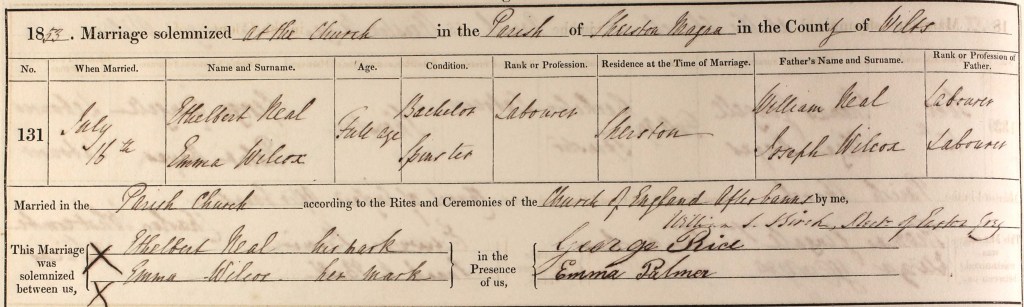 1853. Marriage solemnized at the Church in the Parish of Sherston Magna in the County of Wilts
No. When Married. Name and Surname. Age. Condition. Rank or Profession. Residence at the Time of Marriage. Father's Name and Surname. Rank or Profession of Father.
131 July 16th Ethelbert Neal Full age Bachelor Labourer Sherston William Neal Labourer
Emma Wilcox Spinster Joseph Wilcox Labourer
Married in the Parish Church according to the Rites and Ceremonies of the Church of England After banns by me,
William S. Birch
This Marriage was solemnized between us, X Ethelbert Neal his mark in the Presence of us, George Rice
X Emma Wilcox her mark Emma Palmer